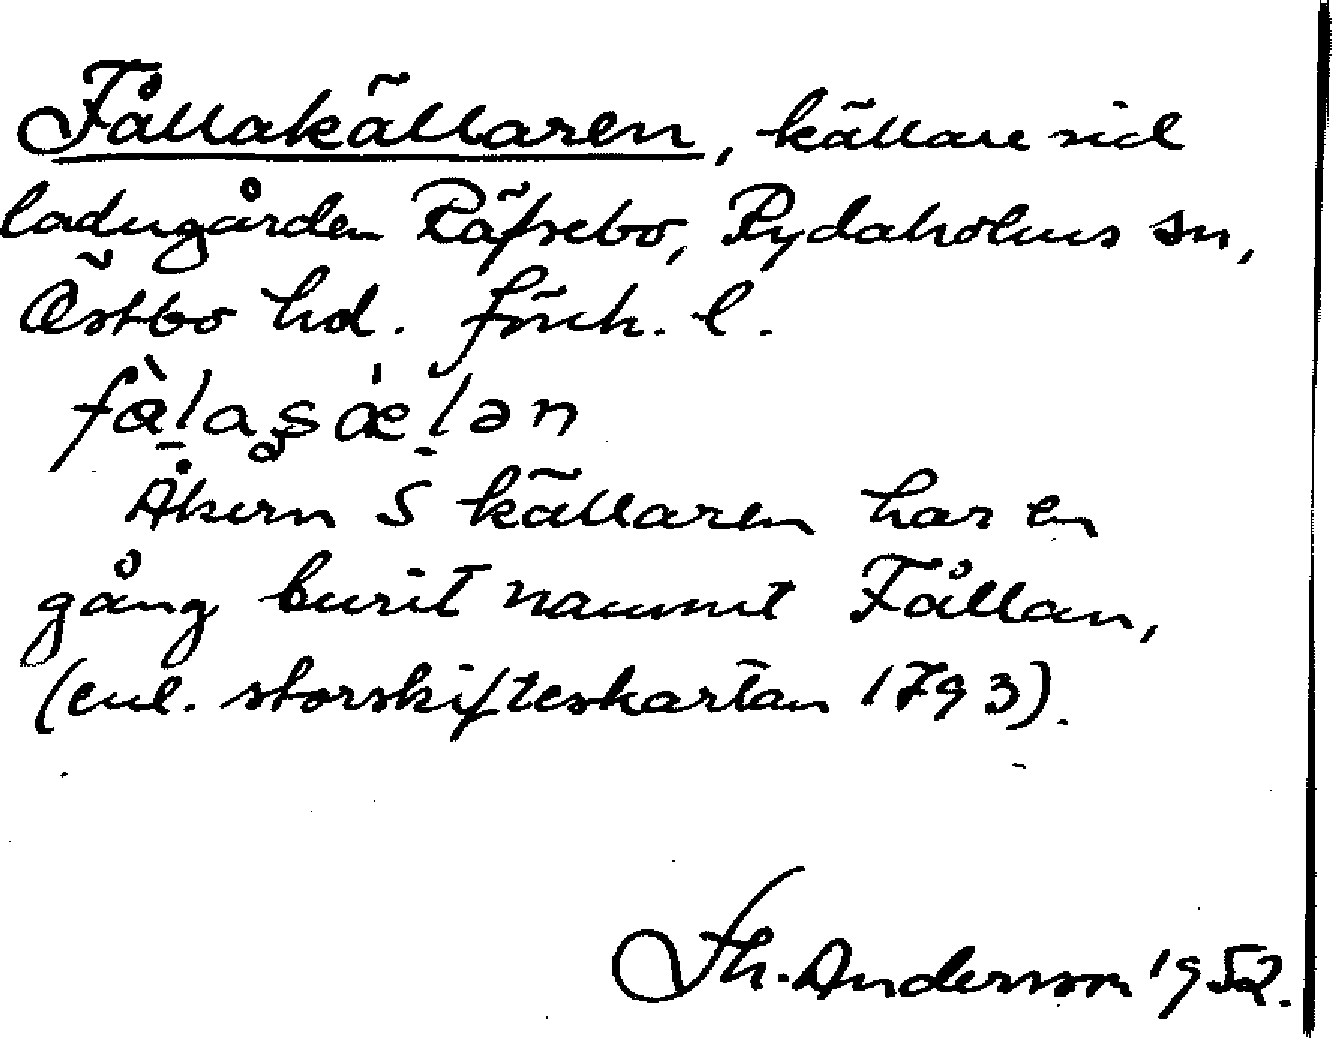 Fållakällaren, källare vid
ladugården Räfsebo, Rydaholms sn,
Östbo hd.
Åkern S källaren har en
gång burit namnet Fållan,
(enl. storskifteskartan 1793).
Th. Anderson 1952.